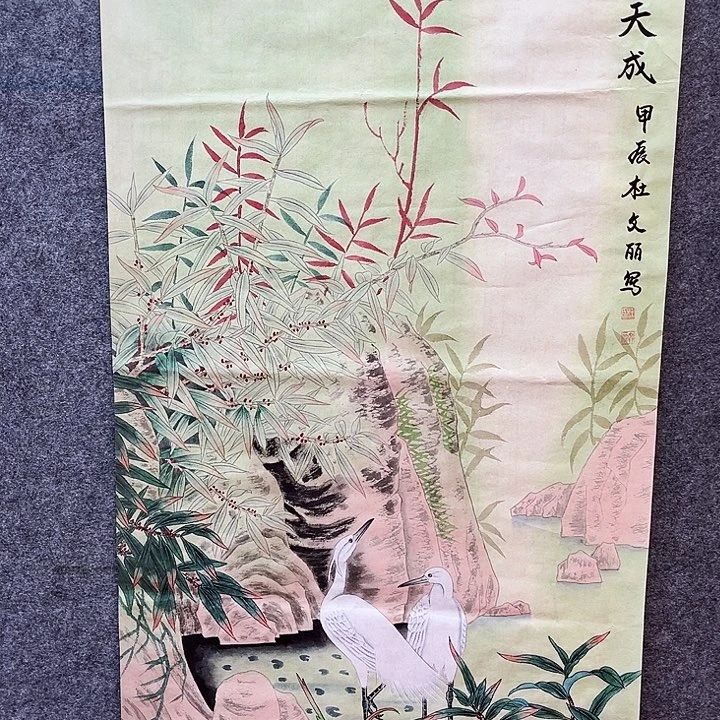 天成
甲辰杜文丽写